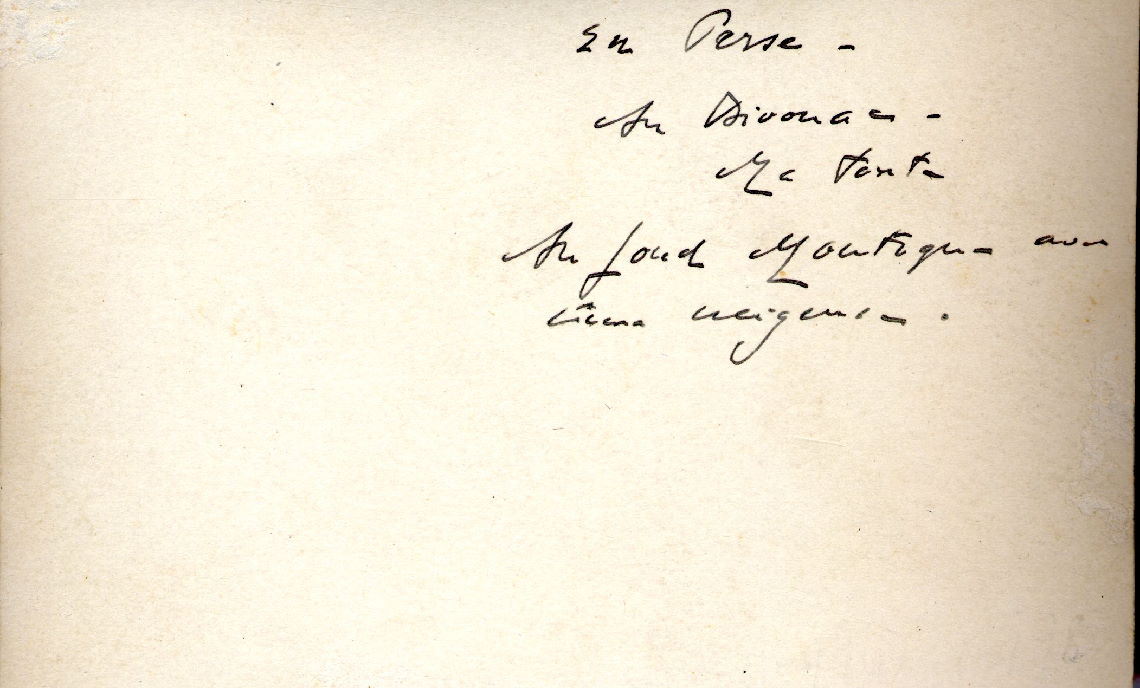 En Perse -
Au Bivouac -
Ma tente
Au fond Montagne avec
cime neigeuse.